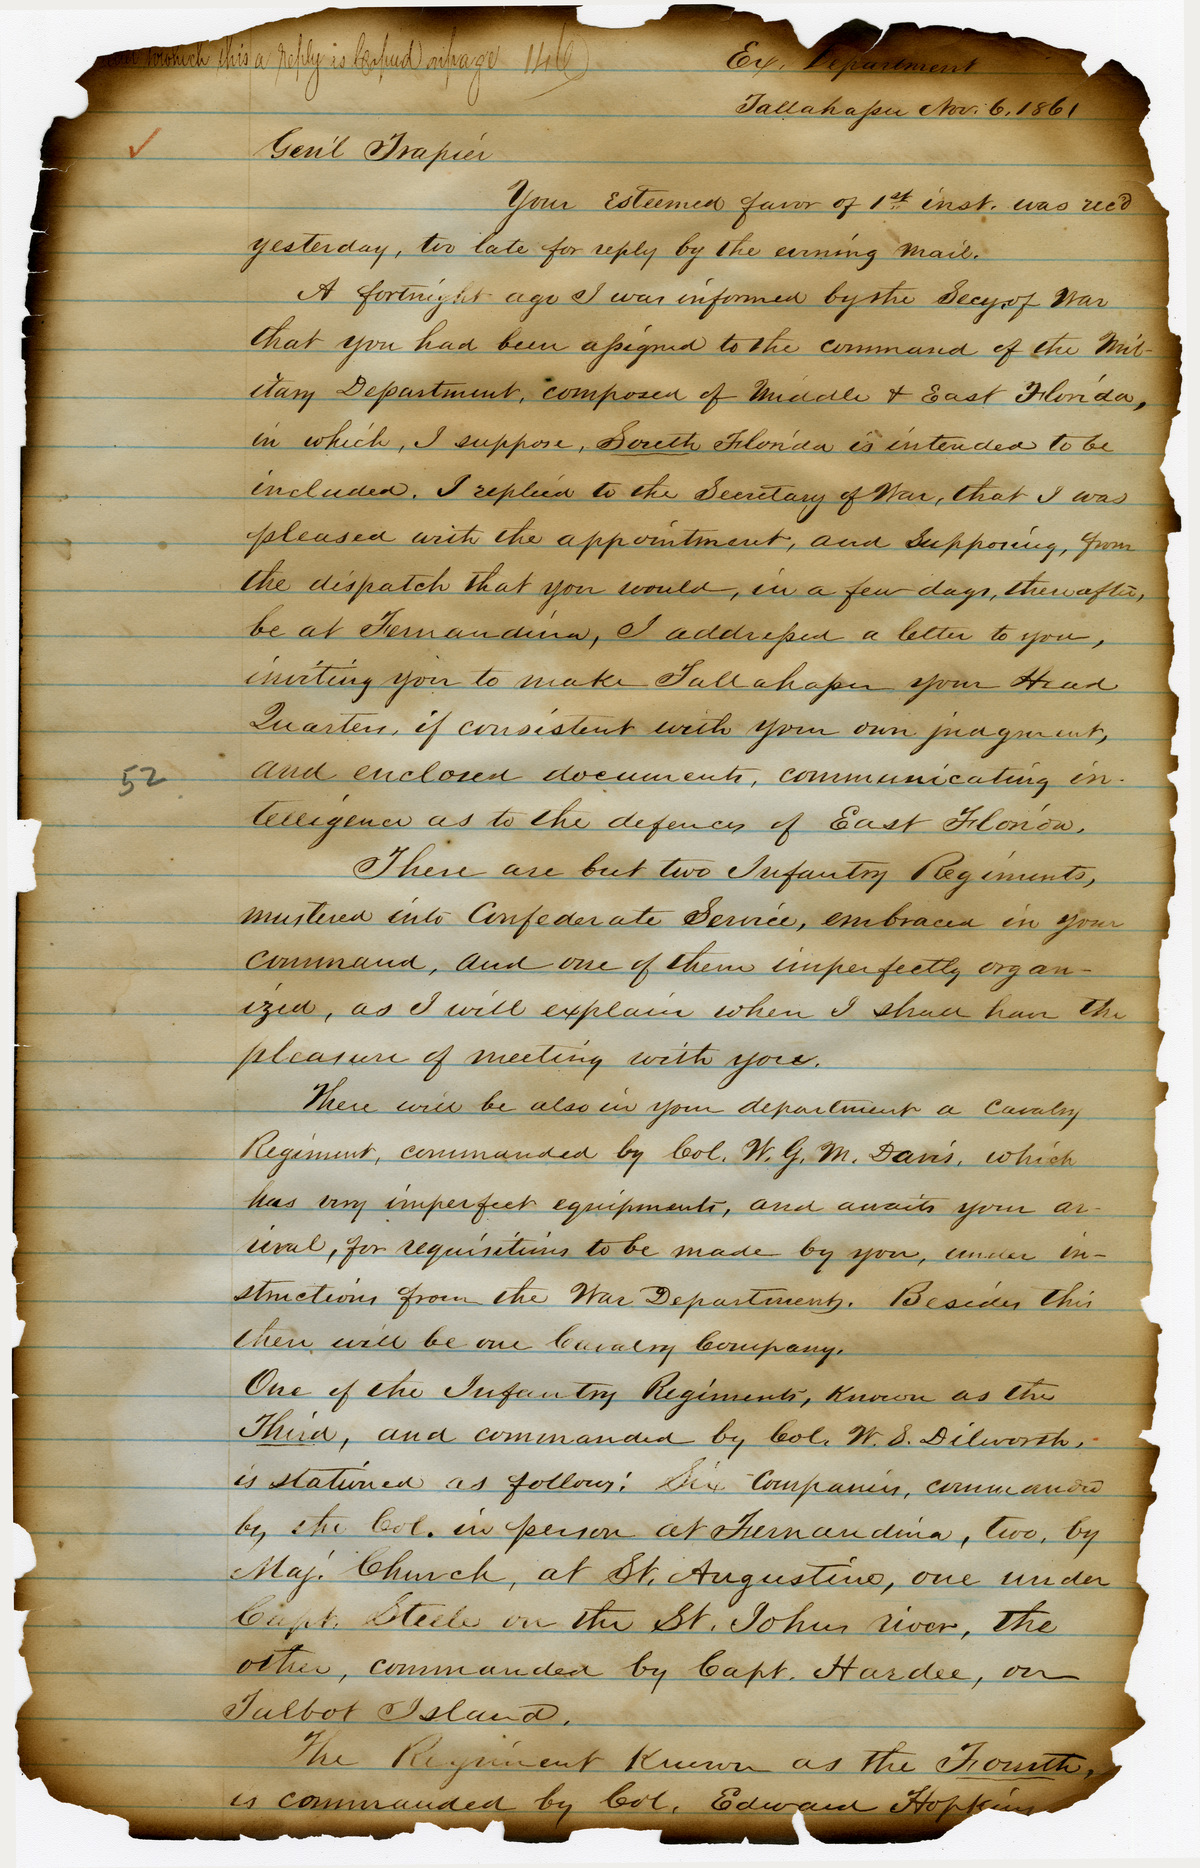 to which this a reply is Copied in page 146)
Ex. Department
Tallahassee Nov. 6. 1861
✓
Gen'l Trapier
Your esteemed favor of 1st inst. was rec'd
yesterday, too late for reply by the evening mail.
A fortnight ago I was informed by the Secy. of War
that you had been assigned to the command of the Mil-
itary Department, composed of Middle & East Florida,
in which, I suppose, South Florida is intended to be
included. I replied to the Secretary of War, that I was
pleased with the appointment, and supposing, from
the dispatch that you would, in a few days, thereafter,
be at Fernandina, I addressed a letter to you,
inviting you to make Tallahassee your Head
Quarters, if consistent with your own judgment,
and enclosed documents, communicating in-
52
telligence as to the defences of East Florida.
There are but two Infantry Regiments,
mustered into Confederate Service, embraced in your
command, and one of them imperfectly organ-
ized, as I will explain when I shall have the
pleasure of meeting with you.
There will be also in your department a Cavalry
Regiment, commanded by Col. W. G. M. Davis, which
has very imperfect equipments, and awaits your ar-
rival, for requisitions to be made by you, under in-
structions from the War Department. Besides this
there will be one Cavalry Company.
One of the Infantry Regiments, known as the
Third, and commanded by Col. W. S. Dilworth,
is stationed as follows: Six Companies, commanded
by the Col. in person at Fernandina, two, by
Maj. Church, at St. Augustine, one under
Capt. Steele on the St. Johns river, the
other, commanded by Capt. Hardee, on
Talbot Island.
The Regiment known as the Fourth,
is commanded by Col. Edward Hopkins